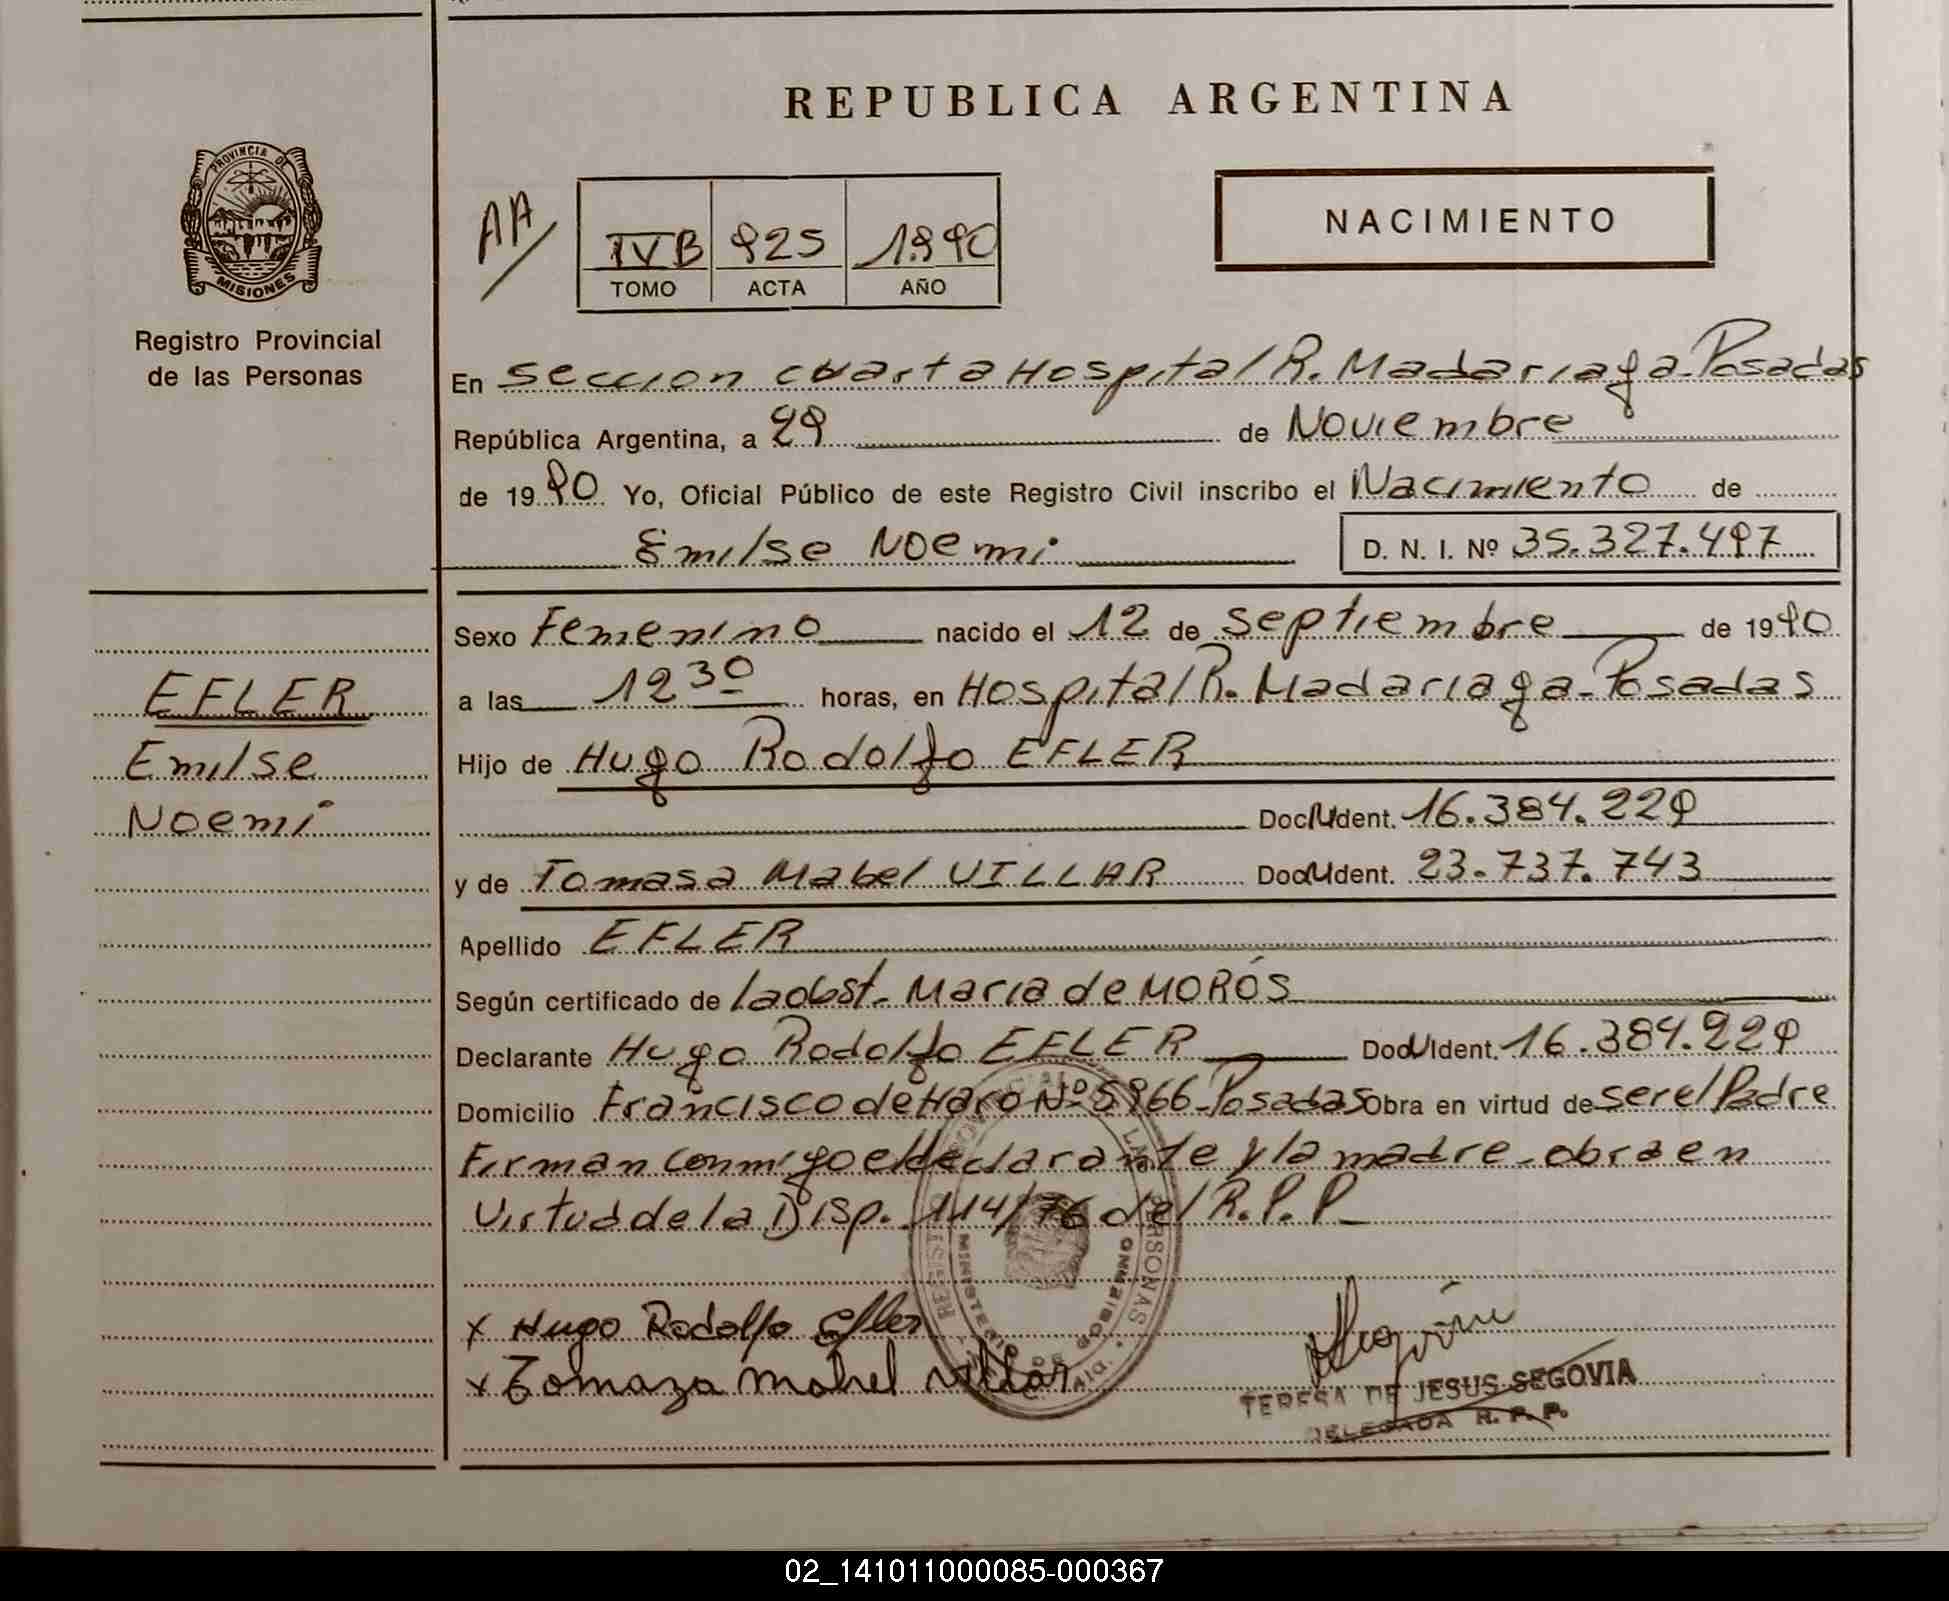 REPUBLICA ARGENTINA
PROVINCIA DE
MISIONES
Registro Provincial
de las Personas
AA/
IVB 925 1990
TOMO ACTA AÑO
NACIMIENTO
En Seccion cuarta Hospital R. Madariaga-Posadas
República Argentina, a 29 de Noviembre
de 1990 Yo, Oficial Público de este Registro Civil inscribo el Nacimiento de
Emilse Noemi D. N. I. Nº 35.327.497
Sexo Femenino nacido el 12 de septiembre de 1990
a las 12 30 horas, en Hospital R. Madariaga-Posadas
EFLER
Emilse
Noemi
Hijo de Hugo Rodolfo EFLER
Doc. Ident. 16.384.229
y de Tomasa Mabel VILLAR Doc. Ident. 23.737.743
Apellido EFLER
Según certificado de la obst. Maria de MORÓS
Declarante Hugo Rodolfo EFLER Doc. Ident. 16.384.229
Domicilio Francisco de Haro Nº 5966-Posadas Obra en virtud de ser el Padre
Firman conmigo el declarante y la madre-obra en
Virtud de la Disp. 114/76 del R.P.P-
x Hugo Rodolfo Efler
x Tomaza Mabel Villar
Segovia
TERESA DE JESUS SEGOVIA
DELEGADA R. P. P.
02_141011000085-000367